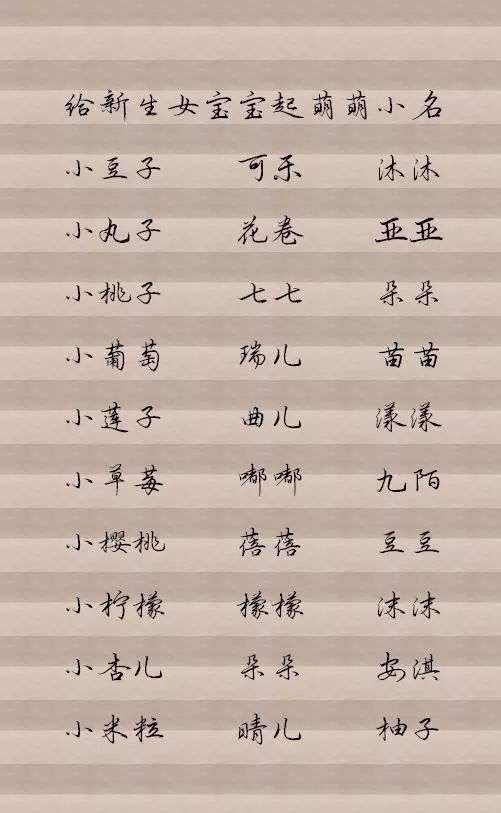 给新生女宝宝起萌萌小名
小豆子 可乐 沐沐
小丸子 花卷 亚亚
小桃子 七七 朵朵
小葡萄 瑞儿 苗苗
小莲子 曲儿 漾漾
小草莓 嘟嘟 九陌
小樱桃 蓓蓓 豆豆
小柠檬 檬檬 沫沫
小杏儿 朵朵 安淇
小米粒 晴儿 柚子